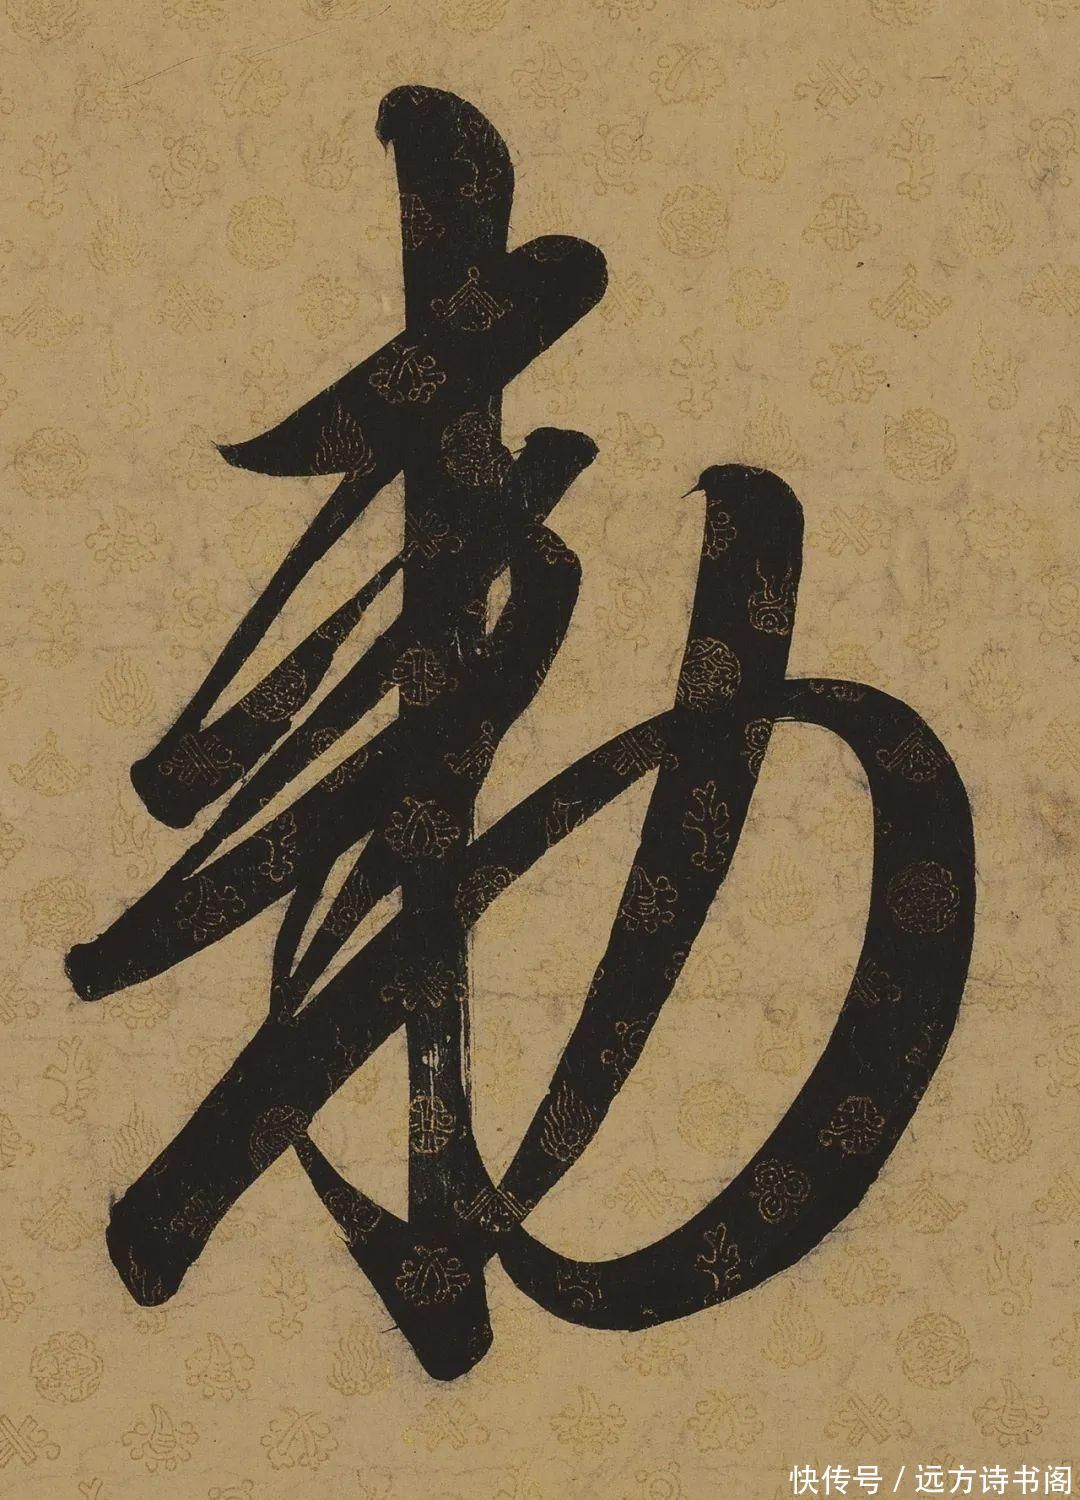 勅
快传号 / 远方诗书阁